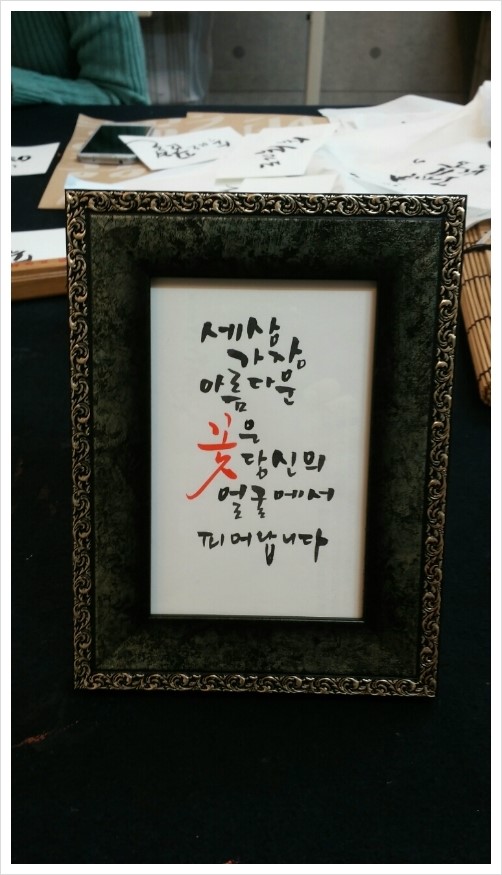 세상
가장
아름다운
꽃은
당신의
얼굴에서
피어납니다